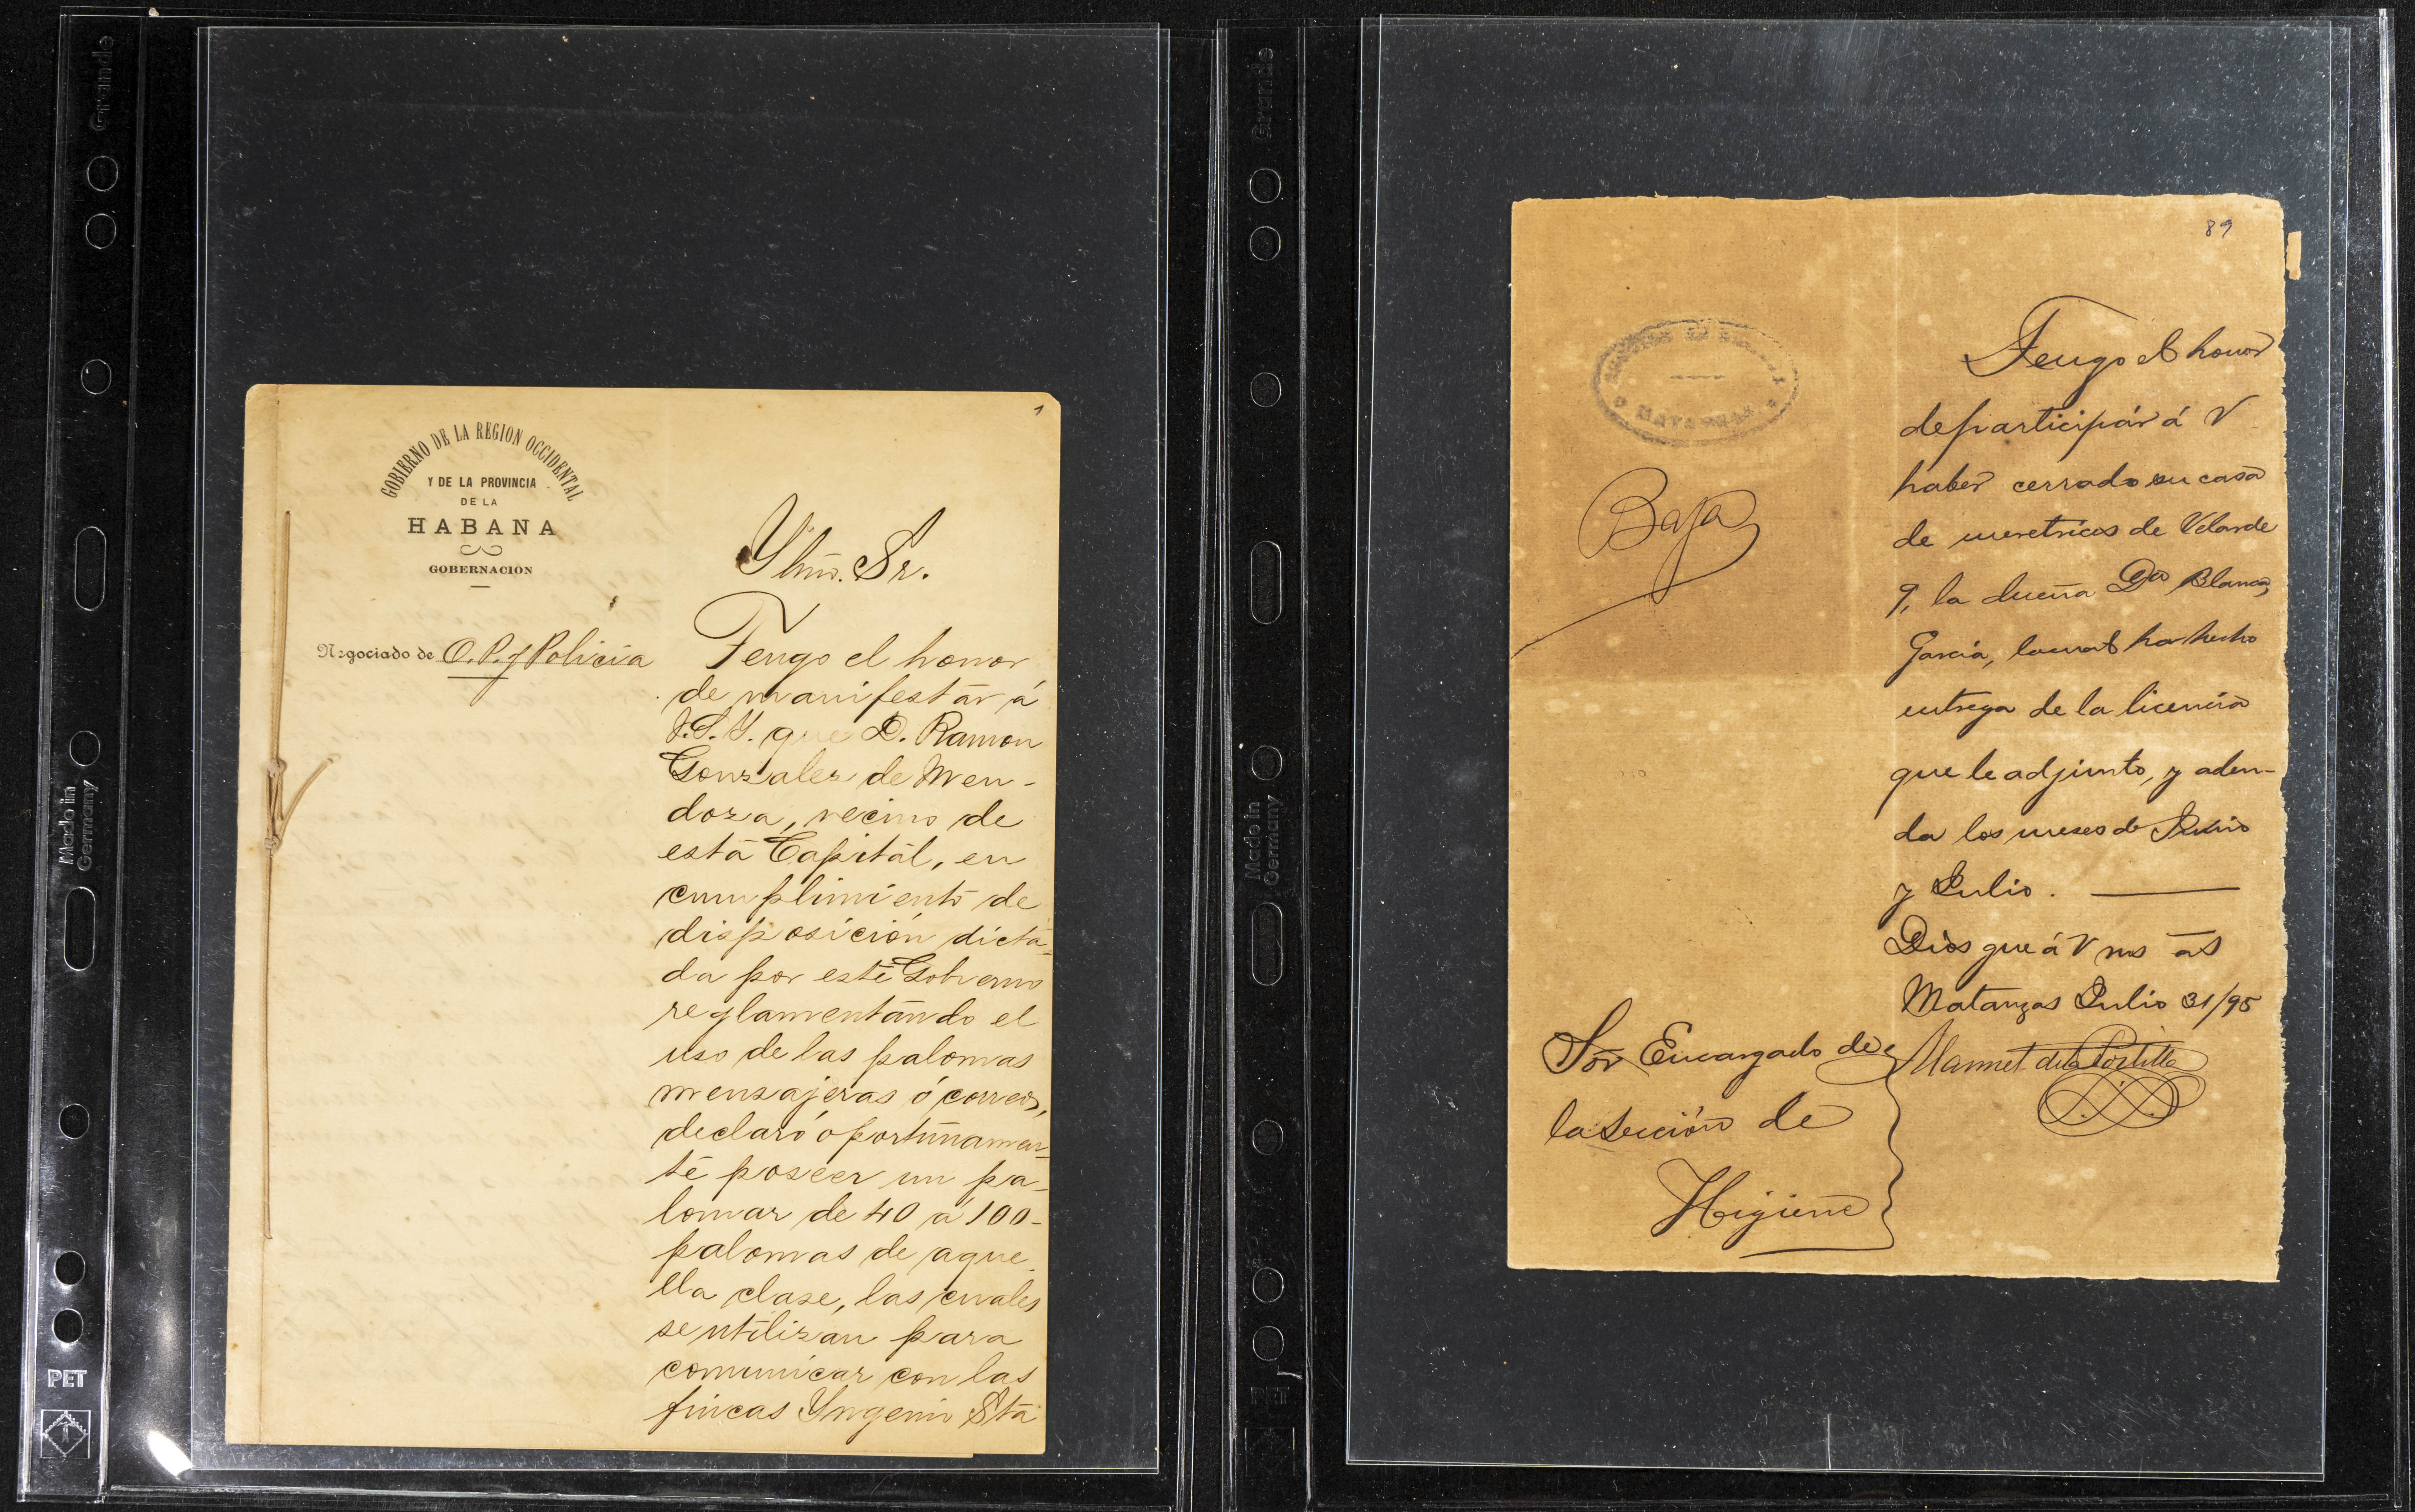 Grande
Made in
Germany
PET
1
GOBIERNO DE LA REGION OCCIDENTAL
Y DE LA PROVINCIA
DE LA
HABANA
GOBERNACION
Negociado de O. P. y Policia
Yltmo. Sr.
Tengo el honor
de manifestar á
V.S.Y. que D. Ramon
Gonzalez de Men-
doza, vecino de
esta Capital, en
cumplimiento de
disposición dicta-
da por este Gobierno
reglamentando el
uso de las palomas
mensajeras ó correos,
declaró oportunamen-
te poseer un pa-
lomar de 40 á 100-
palomas de aque-
lla clase, las cuales
se utilizan para
comunicar con las
fincas Yngenio Sta
Grande
Made in
Germany
PET
89
MATANZAS
Baja
Tengo el honor
de participár á V
haber cerrado su casa
de meretrices de Velarde
9, la dueña Da Blanca
Garcia, la cual ha hecho
entrega de la licencia
que le adjunto, y aden-
da los meses de Junio
y Julio.
Dios gue á V ms as
Matanzas Julio 31/95
Manuel de la Portilla
Sor Encargado de
la Sección de
Higiene